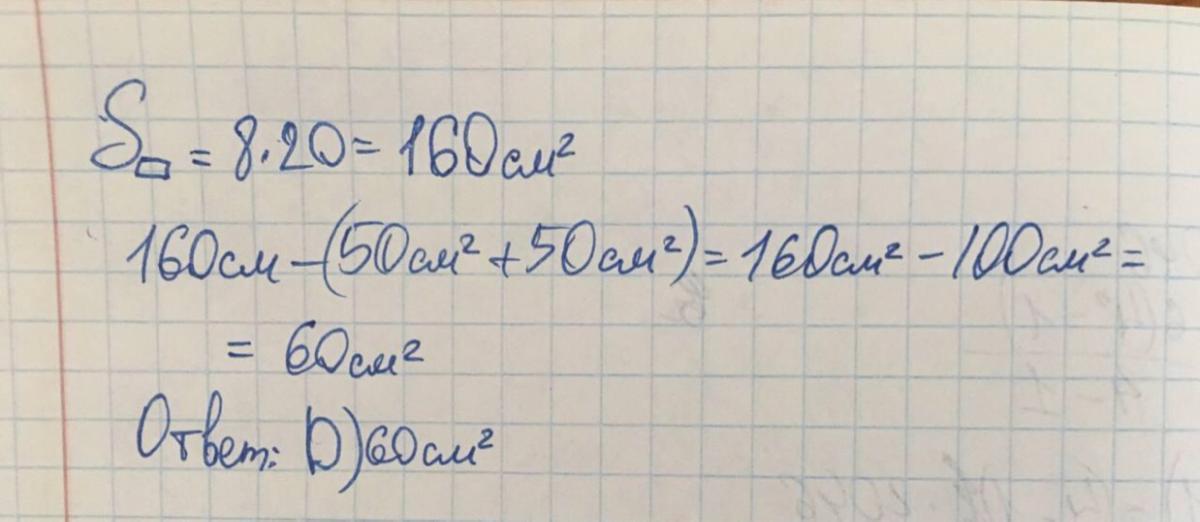 S▭ = 8·20 = 160см²
160см – (50см² + 50см²) = 160см² – 100см² =
= 60см²
Ответ: D) 60см²